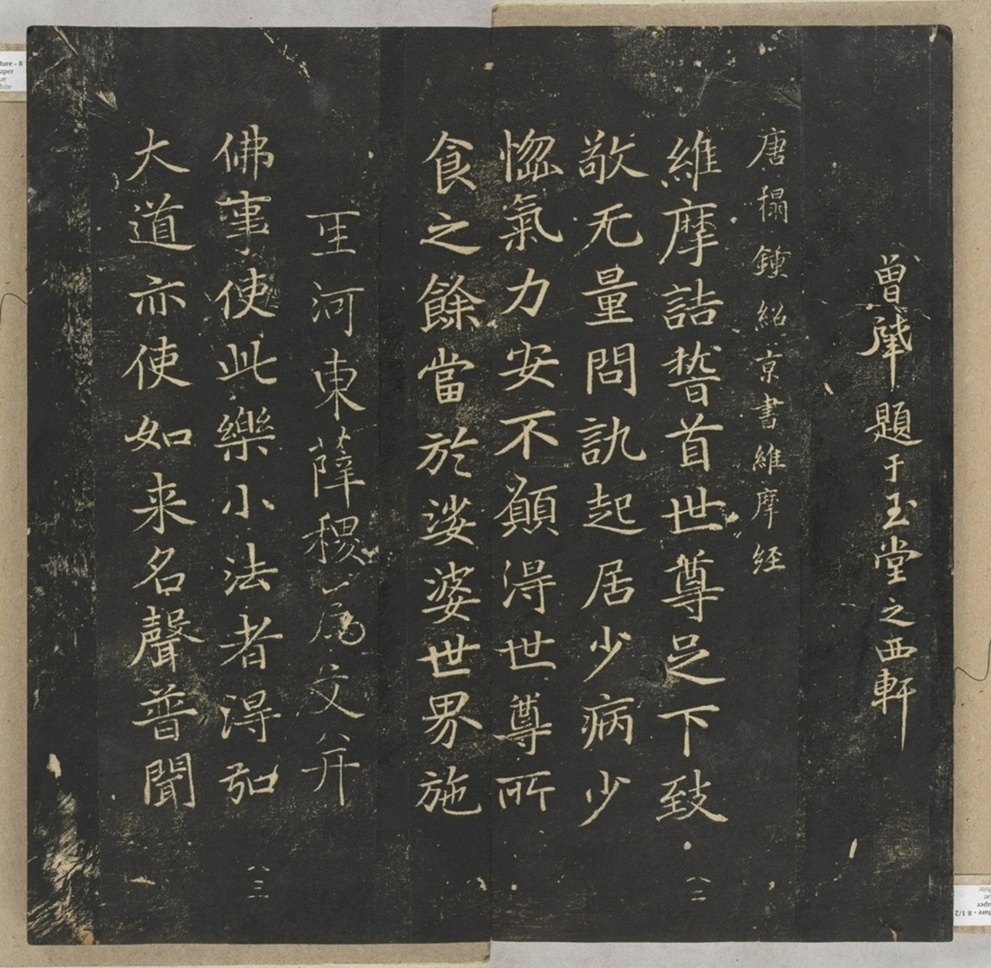 曾肇題于玉堂之西軒
唐搨鍾紹京書維摩经
維摩詰誓首世尊足下致
敬无量問訊起居少病少
惱氣力安不願淂世尊所
食之餘當於娑婆世界施
河東薛稷為文并
佛事使此樂小法者淂弘
大道亦使如来名聲普聞
八二
八三